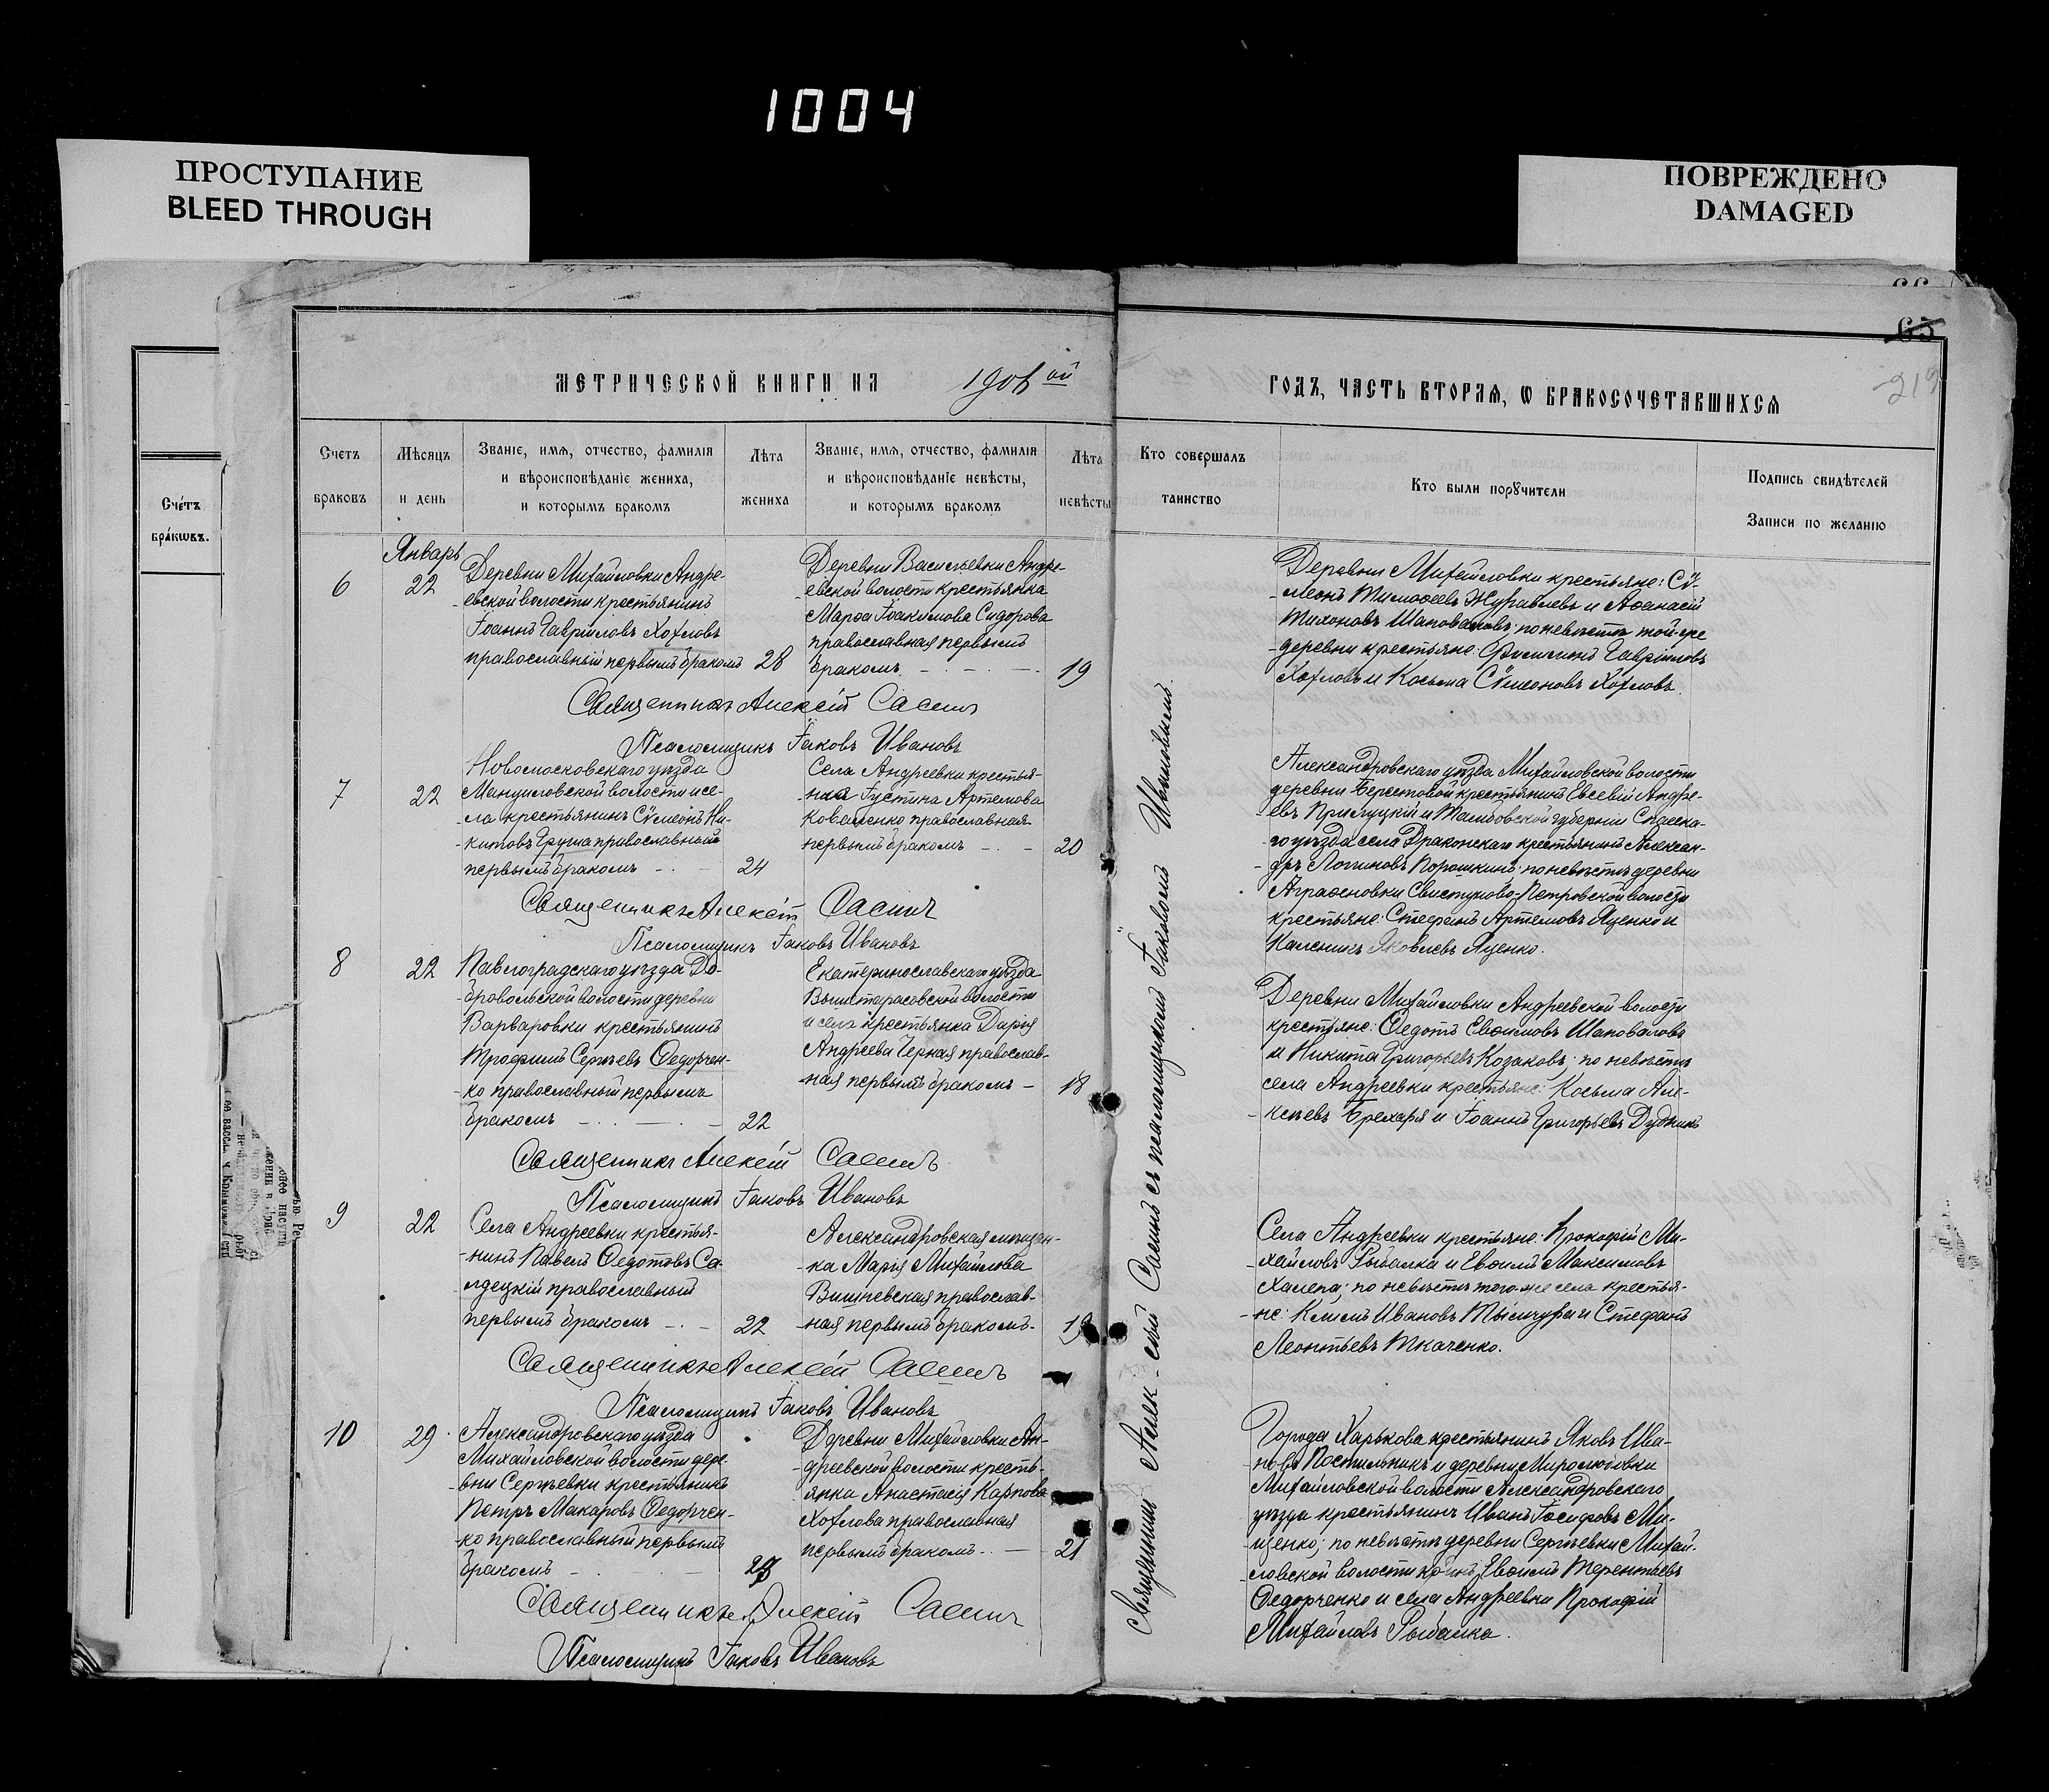 1004
ПРОСТУПАНИЕ
BLEED THROUGH
ПОВРЕЖДЕНО
DAMAGED
65
219
МЕТРИЧЕСКОЙ КНИГИ НА
ой
ГОДЪ, ЧАСТЬ ВТОРАЯ, Ѡ БРАКОСОЧЕТАВШИХСЯ
Счетъ
браковъ
Мѣсяцъ
и день
Званіе, имя, отчество, фамилія
и вѣроисповѣданіе жениха,
и которымъ бракомъ
Лѣта
жениха
Званіе, имя, отчество, фамилія
и вѣроисповѣданіе невѣсты,
и которымъ бракомъ
Лѣта
невѣсты
Кто совершалъ
таинство
Кто были порꙋчители
Подпись свидѣтелей
Записи по желанію
Сче́тъ
бра́кѡвъ.
Январь
6
22
Деревни Михайловки Андре-
-евской волости крестьянинъ
Іоаннъ Гавриловъ Хохловъ
православный первымъ бракомъ
28
Деревни Васильевки Андре-
-евской волости крестьянка
Марѳа Іоакимова Сидорова
православная первымъ
бракомъ
19
Деревни Михайловки крестьяне: Сѵ-
-меонъ Тимоѳеевъ Журавлевъ и Аѳанасій
Тихоновъ Шаповаловъ; по невѣстѣ той-же
деревни крестьяне: Филимонъ Гавріиловъ
Хохловъ и Косьма Сѵмеоновъ Хохловъ.
Священникъ Алексій Сасинъ
Псаломщикъ Іаковъ Ивановъ
7
22
Новомосковскаго уѣзда
Мануиловской волости и се-
-ла крестьянинъ Сѵмеонъ Ни-
-китовъ Груша православный
первымъ бракомъ
24
Села Андреевки крестья-
-нка Іустина Артемова
Коваленко православная
первымъ бракомъ
20
Александровскаго уѣзда Михайловской волости
деревни Берестовой крестьянинъ Евсевій Андре-
-евъ Прилуцкій и Тамбовской губерніи Спасска-
-го уѣзда села Драконскаго крестьянинъ Алексан-
-дръ Логгиновъ Порошкинъ; по невѣстѣ деревни
Аграфеновки Свистуново-Петровской волости
крестьяне: Стефанъ Артемовъ Яценко и
Каленикъ Яковлевъ Яценко.
Священникъ Алексій Сасинъ
Псаломщикъ Іаковъ Ивановъ
8
22
Павлоградскаго уѣзда До-
-бровольской волости деревни
Варваровки крестьянинъ
Трофимъ Сергѣевъ Ѳедорчен-
-ко православный первымъ
бракомъ
22
Екатеринославскаго уѣзда
Вышетарасовской волости
и села крестьянка Дарія
Андреева Черная православ-
-ная первымъ бракомъ
18
Деревни Михайловки Андреевской волости
крестьяне: Ѳедотъ Евѳимовъ Шаповаловъ
и Никита Григорьевъ Козаковъ; по невѣстѣ
села Андреевки крестьяне: Косьма Але-
-ксѣевъ Брехаря и Іоаннъ Григорьевъ Дудникъ
Священникъ Алексій Сасинъ
Псаломщикъ Іаковъ Ивановъ
9
22
Села Андреевки крестья-
-нинъ Павелъ Ѳедотовъ Са-
-лдецкій православный
первымъ бракомъ
22
Александровская мѣщан-
-ка Марія Михайлова
Вишневская православ-
-ная первымъ бракомъ
19
Села Андреевки крестьяне: Прокофій Ми-
-хайловъ Рыбалка и Евѳимъ Максимовъ
Халепа; по невѣстѣ того-же села крестья-
-не: Климъ Ивановъ и Стефанъ
Леонтьевъ Ткаченко.
Священникъ Алексій Сасинъ
Псаломщикъ Іаковъ Ивановъ
10
29
Александровскаго уѣзда
Михайловской волости дере-
-вни Сергѣевки крестьянинъ
Петръ Макаровъ Ѳедорчен-
-ко православный первымъ
бракомъ
Деревни Михайловки Ан-
-дреевской волости кресть-
-янка Анастасія Карпова
Хохлова православная
первымъ бракомъ
21
Города Харькова крестьянинъ Яковъ Ива-
-новъ Постильникъ и деревни Миролюбовки
Михайловской волости Александровскаго
уѣзда крестьянинъ Иванъ Іосифовъ Ми-
-щенко; по невѣстѣ деревни Сергѣевки Михай-
-ловской волости Евѳимъ Терентьевъ
Ѳедорченко и села Андреевки Прокофій
Михайловъ Рыбалка.
Священникъ Алексій Сасинъ
Псаломщикъ Іаковъ Ивановъ
Священникъ Алек-сѣй Сасинъ съ псаломщикомъ Іаковомъ Ивановымъ.